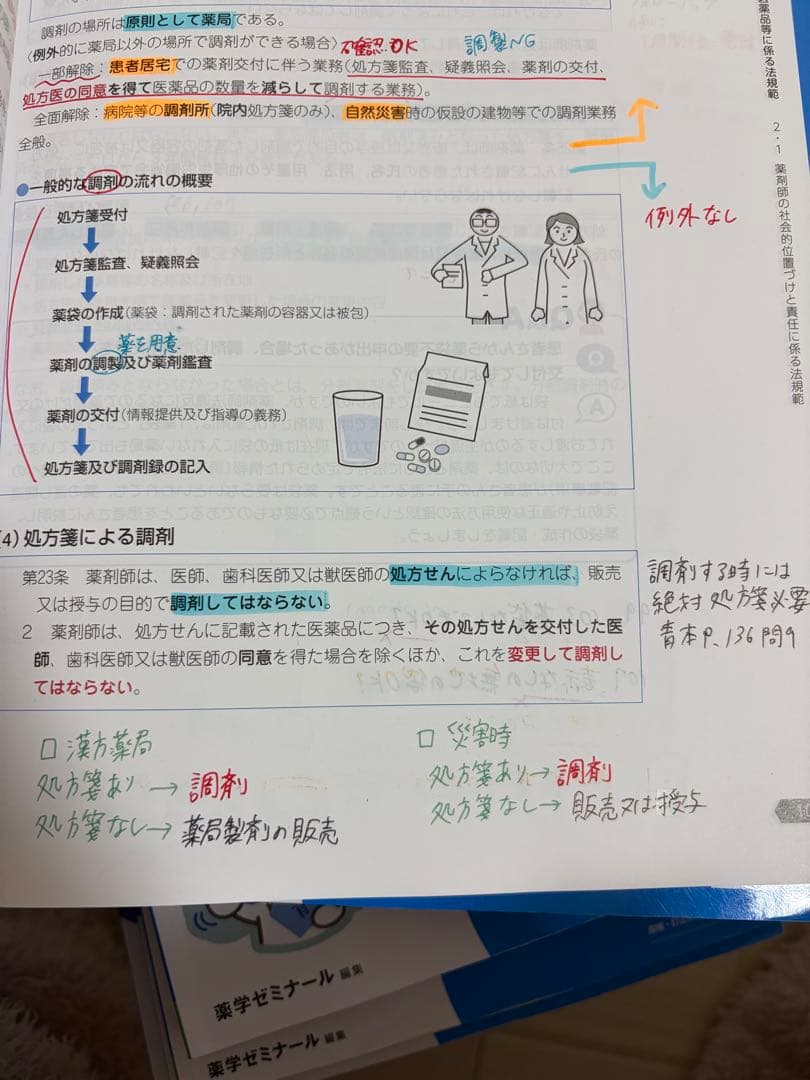 調剤の場所は原則として薬局である。
(例外的に薬局以外の場所で調剤ができる場合) 確認OK 調製NG
一部解除：患者居宅での薬剤交付に伴う業務(処方箋監査、疑義照会、薬剤の交付、
処方医の同意を得て医薬品の数量を減らして調剤する業務)。
全面解除：病院等の調剤所(院内処方箋のみ)、自然災害時の仮設の建物等での調剤業務
全般。
例外なし
●一般的な調剤の流れの概要
処方箋受付
処方箋監査、疑義照会
薬袋の作成(薬袋：調剤された薬剤の容器又は被包)
薬を用意
薬剤の調製及び薬剤鑑査
薬剤の交付(情報提供及び指導の義務)
処方箋及び調剤録の記入
(4)処方箋による調剤
第23条 薬剤師は、医師、歯科医師又は獣医師の処方せんによらなければ、販売
又は授与の目的で調剤してはならない。
2 薬剤師は、処方せんに記載された医薬品につき、その処方せんを交付した医
師、歯科医師又は獣医師の同意を得た場合を除くほか、これを変更して調剤し
てはならない。
調剤する時には
絶対処方箋必要
青本P.136問9
□ 漢方薬局
処方箋あり→調剤
処方箋なし→薬局製剤の販売
□ 災害時
処方箋あり→調剤
処方箋なし→販売又は授与
医薬品等に係る法規範
2・1 薬剤師の社会的位置づけと責任に係る法規範
薬学ゼミナール 編集
薬学ゼミナール 編集